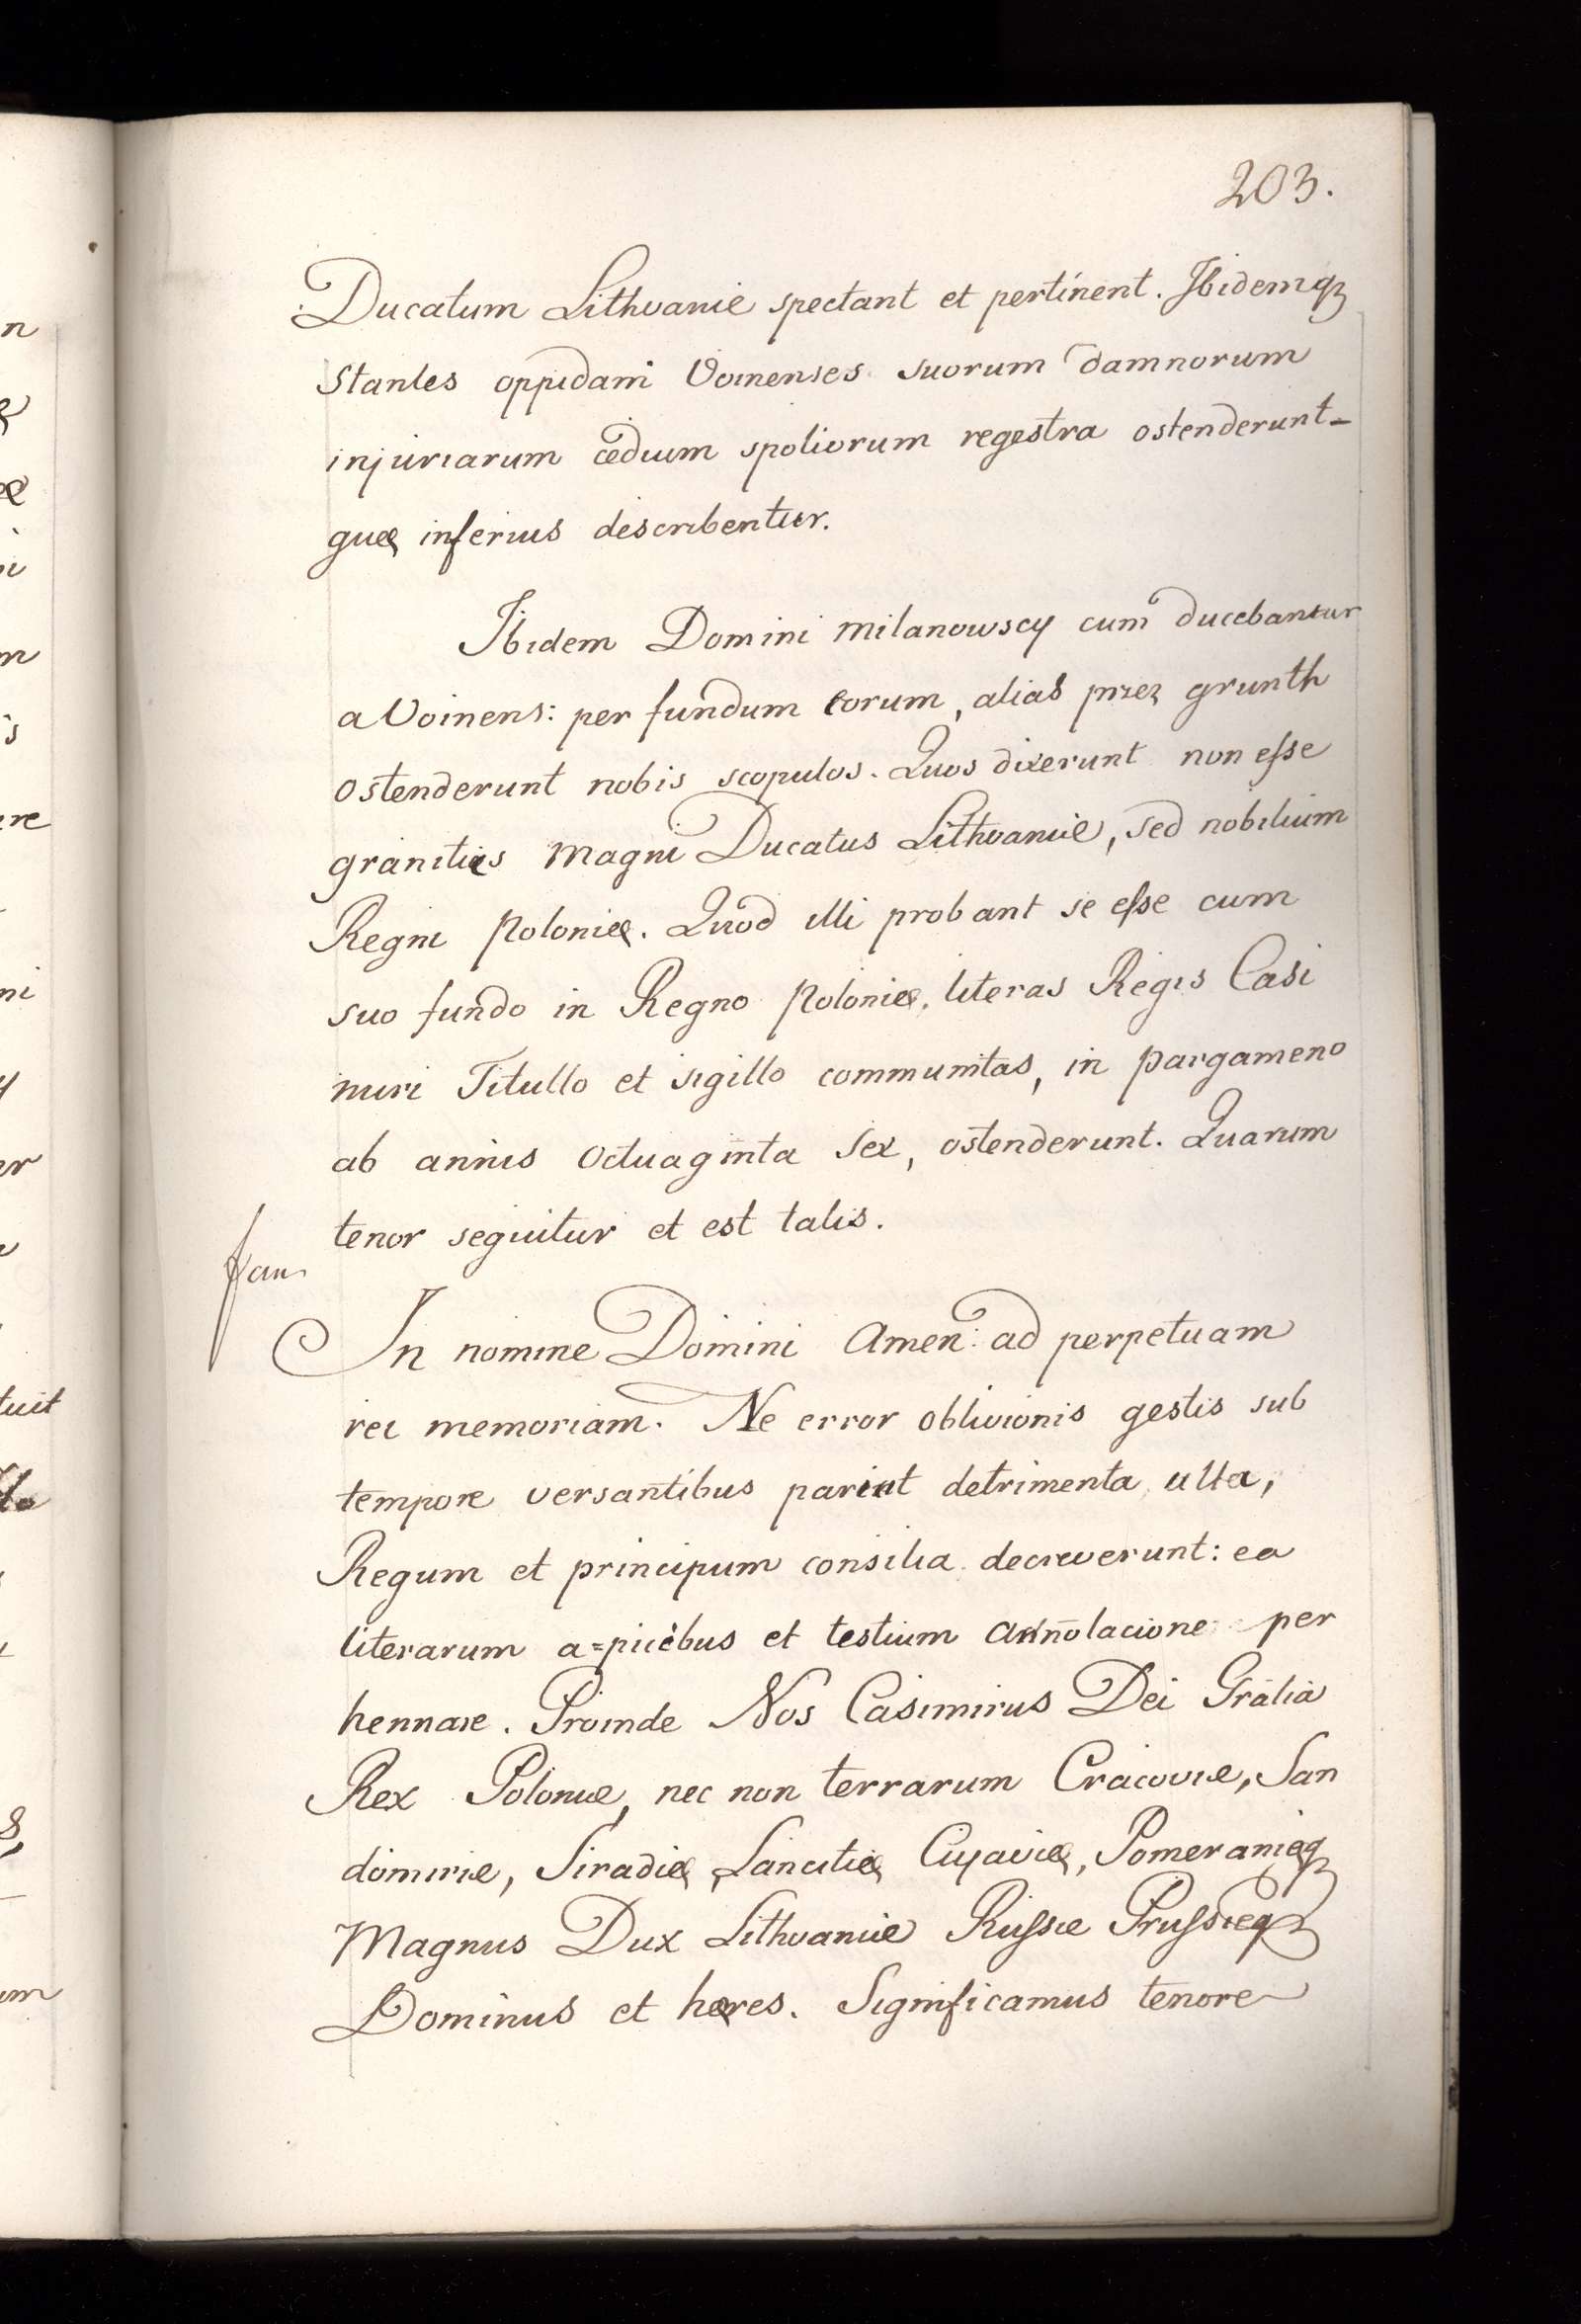 203.
Ducatum Lithvaniæ spectant et pertinent. Ibidemqz
stantes oppidani Voinenses suorum damnorum
injuriarum cædium spoliorum regestra ostenderunt
quæ inferius describentur.
Ibidem Domini Milanowscy cum ducebantur
a Voinens: per fundum eorum, alias przez grunth
ostenderunt nobis scopulos. Quos dixerunt non esse
granities Magni Ducatus Lithvaniæ, sed nobilium
Regni Poloniæ. Quod illi probant se esse cum
suo fundo in Regno Poloniæ, literas Regis Casi
miri Titullo et sigillo communitas, in pargameno
ab annis octuaginta sex, ostenderunt. Quarum
tenor sequitur et est talis.
In nomine Domini Amen: ad perpetuam
rei memoriam. Ne error oblivionis gestis sub
tempore versantibus pariat detrimenta ulla,
Regum et principum consilia decreverunt: ea
literarum a=picibus et testium annotacione per
hennare. Proinde Nos Casimirus Dei Gratia
Rex Poloniæ, nec non terrarum Cracoviæ, San
domiriæ, Siradiæ, Lancitiæ Cujaviæ, Pomeraniæqz
Magnus Dux Lithvaniæ Russiæ Prussiæqz
Dominus et hæres. Significamus tenore